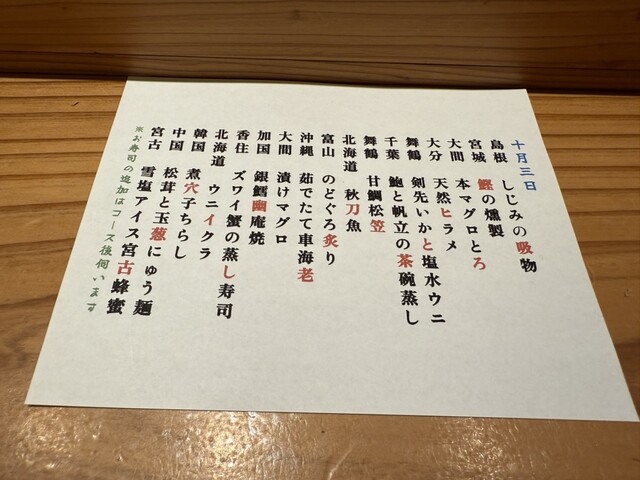 十月三日
島根 しじみの吸物
宮城 鰹の燻製
大間 本マグロとろ
大分 天然ヒラメ
舞鶴 剣先いかと塩水ウニ
千葉 鮑と帆立の茶碗蒸し
舞鶴 甘鯛松笠
北海道 秋刀魚
富山 のどぐろ炙り
沖縄 茹でたて車海老
大間 漬けマグロ
加国 銀鱈幽庵焼
香住 ズワイ蟹の蒸し寿司
北海道 ウニイクラ
韓国 煮穴子ちらし
中国 松茸と玉葱にゅう麺
宮古 雪塩アイス宮古蜂蜜
※お寿司の追加はコース後伺います